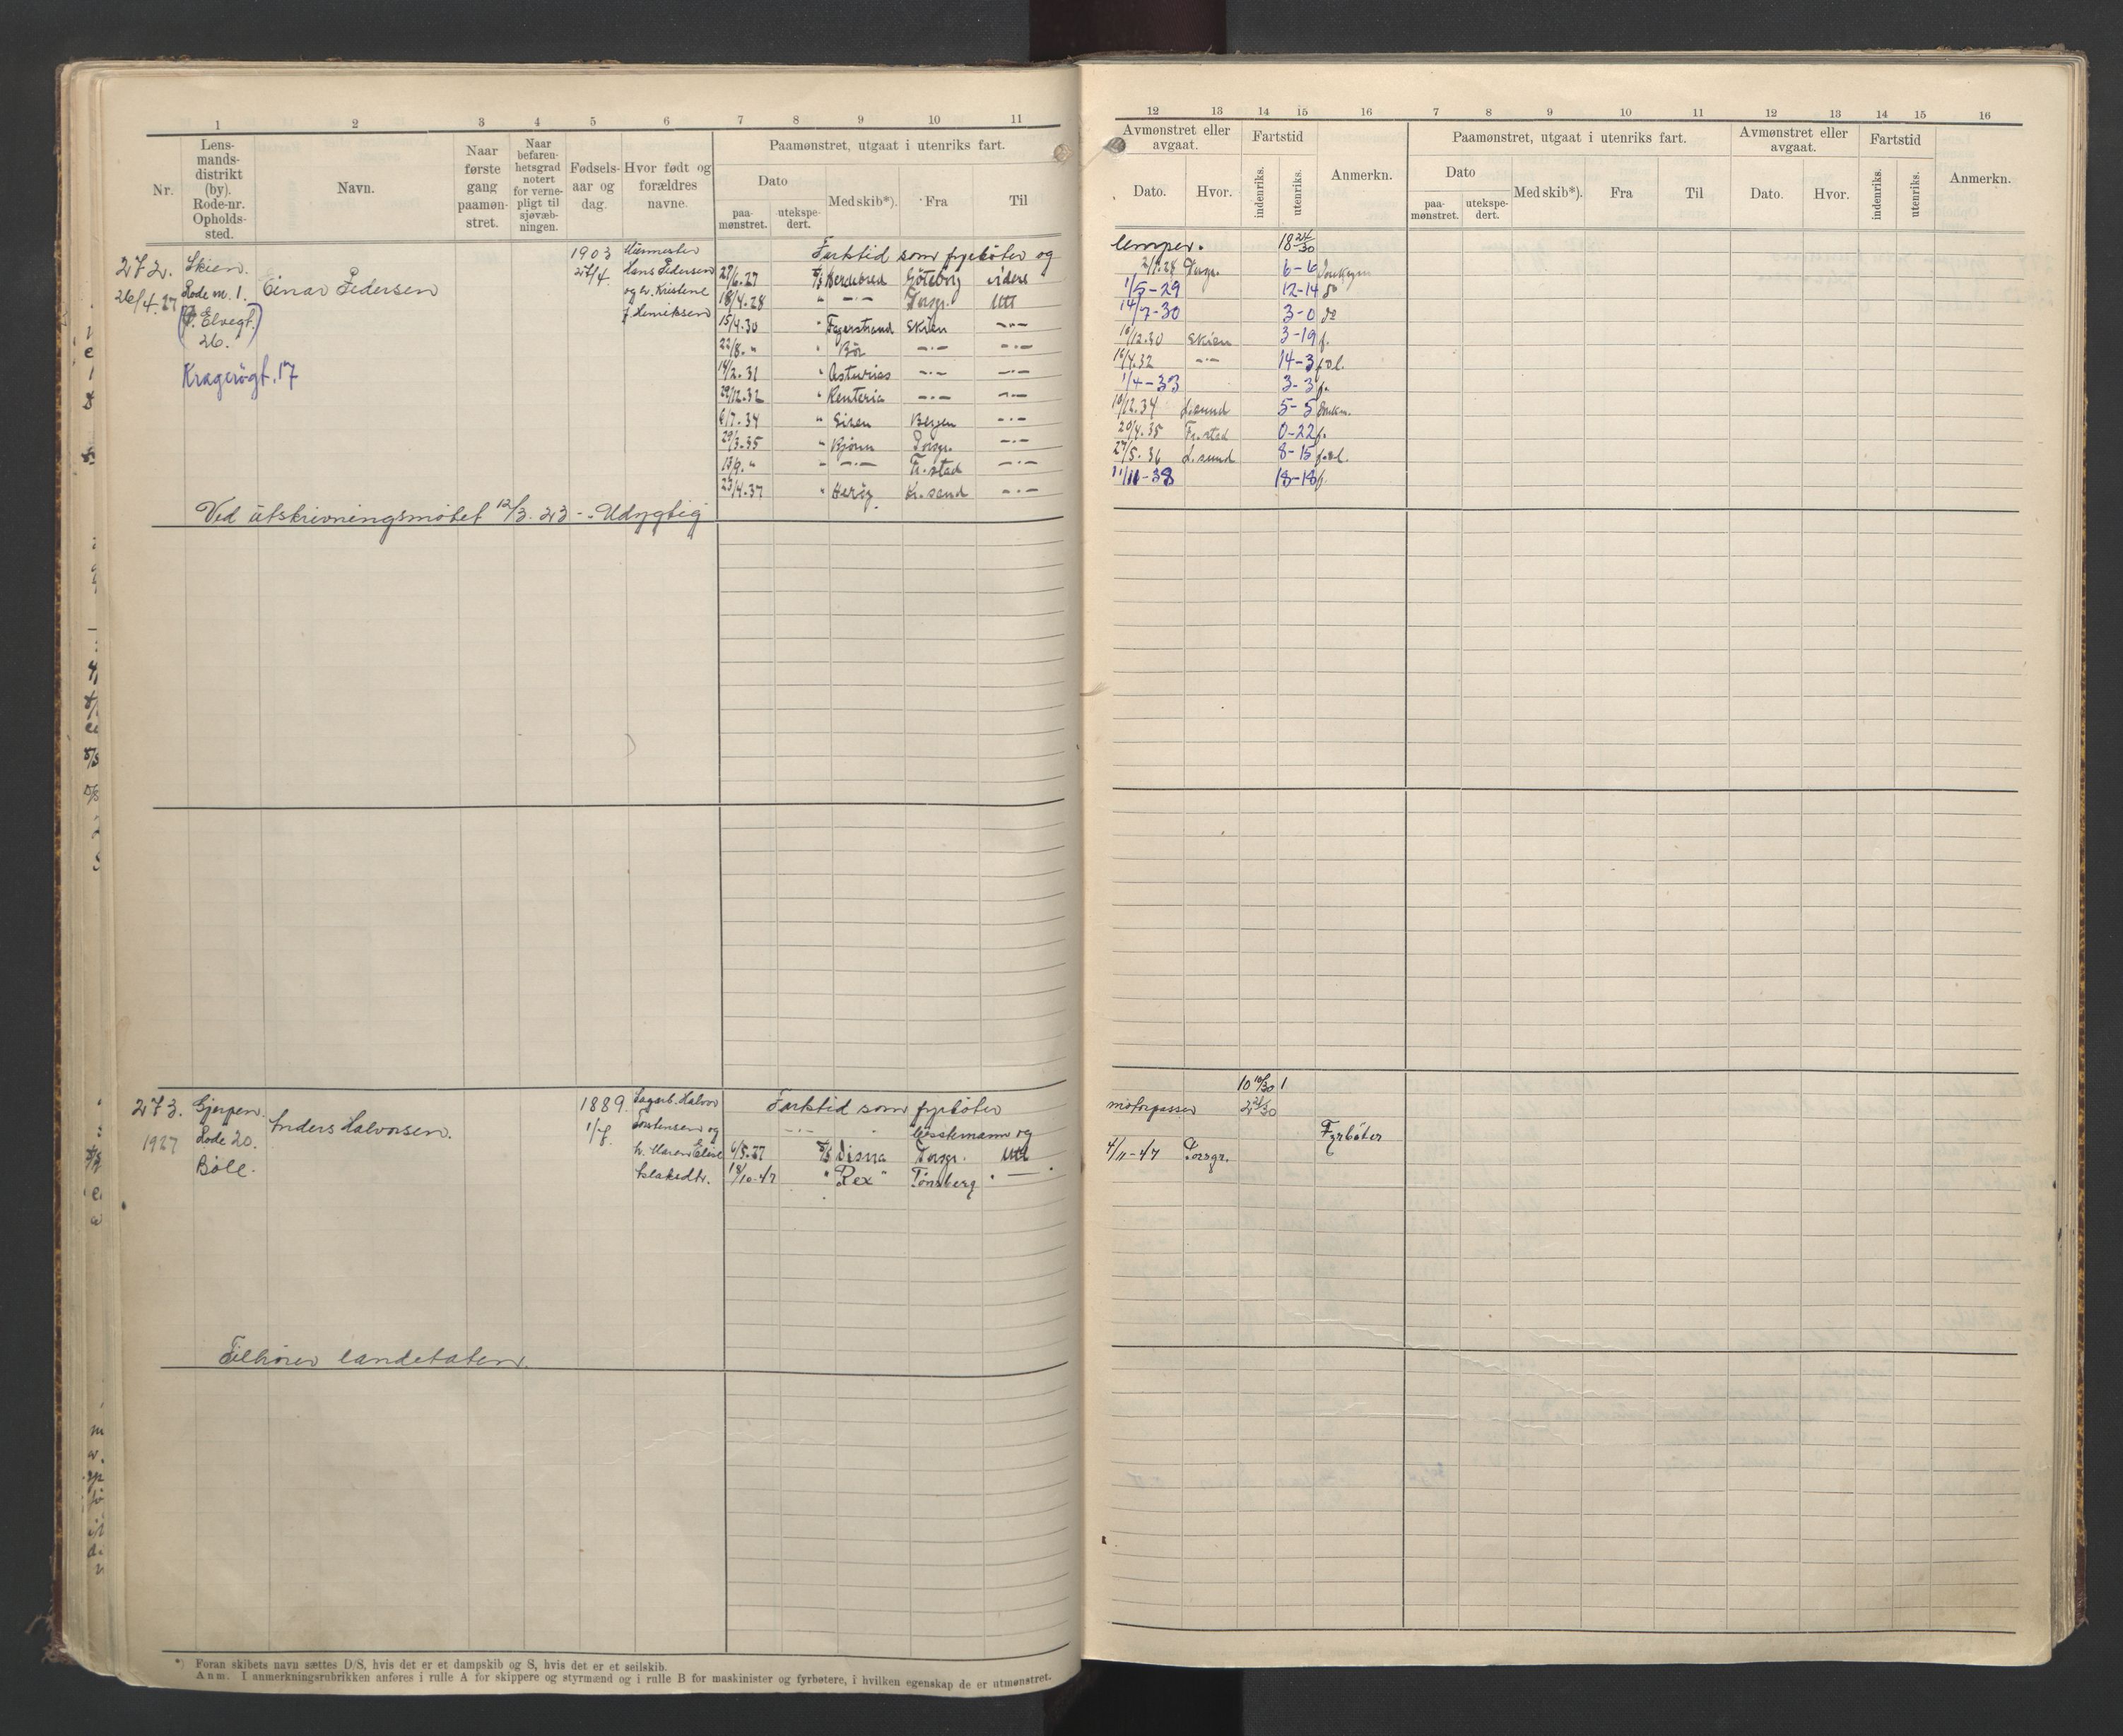 1 2 3 4 5 6 7 8 9 10 11
Nr.
Lens-
mands-
distrikt
(by).
Rode-nr.
Opholds-
sted.
Navn.
Naar
første
gang
paamøn-
stret.
Naar
befaren-
hetsgrad
notert
for verne-
pligt til
sjøvæb-
ningen.
Fødsels-
aar og
dag.
Hvor født og
forældres
navne.
Paamønstret, utgaat i utenriks fart.
Dato
paa-
mønstret.
utekspe-
dert.
Med skib*).
Fra
Til
272.
26/4.27
Skien.
Rode nr. 1.
Elvegt.
26.
Kragerøgt. 17
Einar Pedersen
1903
27/4.
Murmester
Hans Pedersen
og hr. Kristine
f. Henriksen
Fartstid som fyrbøter og
27/6.27 D/S Herdebred Göteborg videre
18/4.28 " —·— Porsgr. Utl
15/4.30 " Fagerstrand Skien —·—
22/8. " " Bör —·— —·—
14/2.31 " Asturias —·— —·—
29/12.32 " Renteria —·— —·—
6/7.34 " Siren Bergen —·—
29/3.35 " Bjønn Porsgr. —·—
13/9. " " —·— Fr.stad —·—
23/4.37 " Kr.sand —·—
Ved utskrivningsmøtet 12/3.23 - Udygtig
273.
1927
Gjerpen.
Rode 20.
Bøle.
Anders Halvorsen.
1889.
Sagarb. Halvor
Torstensen og
h. Maren Elise
Islaksdtr.
Fartstid som fyrbøter
—·— " og
6/5.27 D/S Disna Porsgr. Utl
18/10-47 " "Rex" Tønsberg " —
Tilhører landetaten.
*) Foran skibets navn sættes D/S, hvis det er et dampskib og S, hvis det er et seilskib.
Anm. I anmerkningsrubrikken anføres i rulle A for skippere og styrmænd og i rulle B for maskinister og fyrbøtere, i hvilken egenskap de er utmønstret.
12 13 14 15 16 7 8 9 10 11 12 13 14 15 16
Avmønstret eller
avgaat.
Dato.
Hvor.
Fartstid
indenriks.
utenriks.
Anmerkn.
Paamønstret, utgaat i utenriks fart.
Dato
paa-
mønstret.
utekspe-
dert.
Med skib*).
Fra
Til
Avmønstret eller
avgaat.
Dato.
Hvor.
Fartstid
indenriks.
utenriks.
Anmerkn.
lemper. 18 24/30
Porsgr. 6-6
1/5-29 12-14 do
14/7-30 3-0 do
10/12.30 Skien 3-19 f.
16/4.32 —·— 14-3
1/4-33 3-3 f.
10/12.34 L.sund 5-5
20/4.35 Fr.stad 0-22 f.
27/5.36 L.sund 8-15
11/11-38 18-18 f.
10 10/30 1
motorpasser 2 21/30
Fyrbøter
4/11-47 Porsgr.